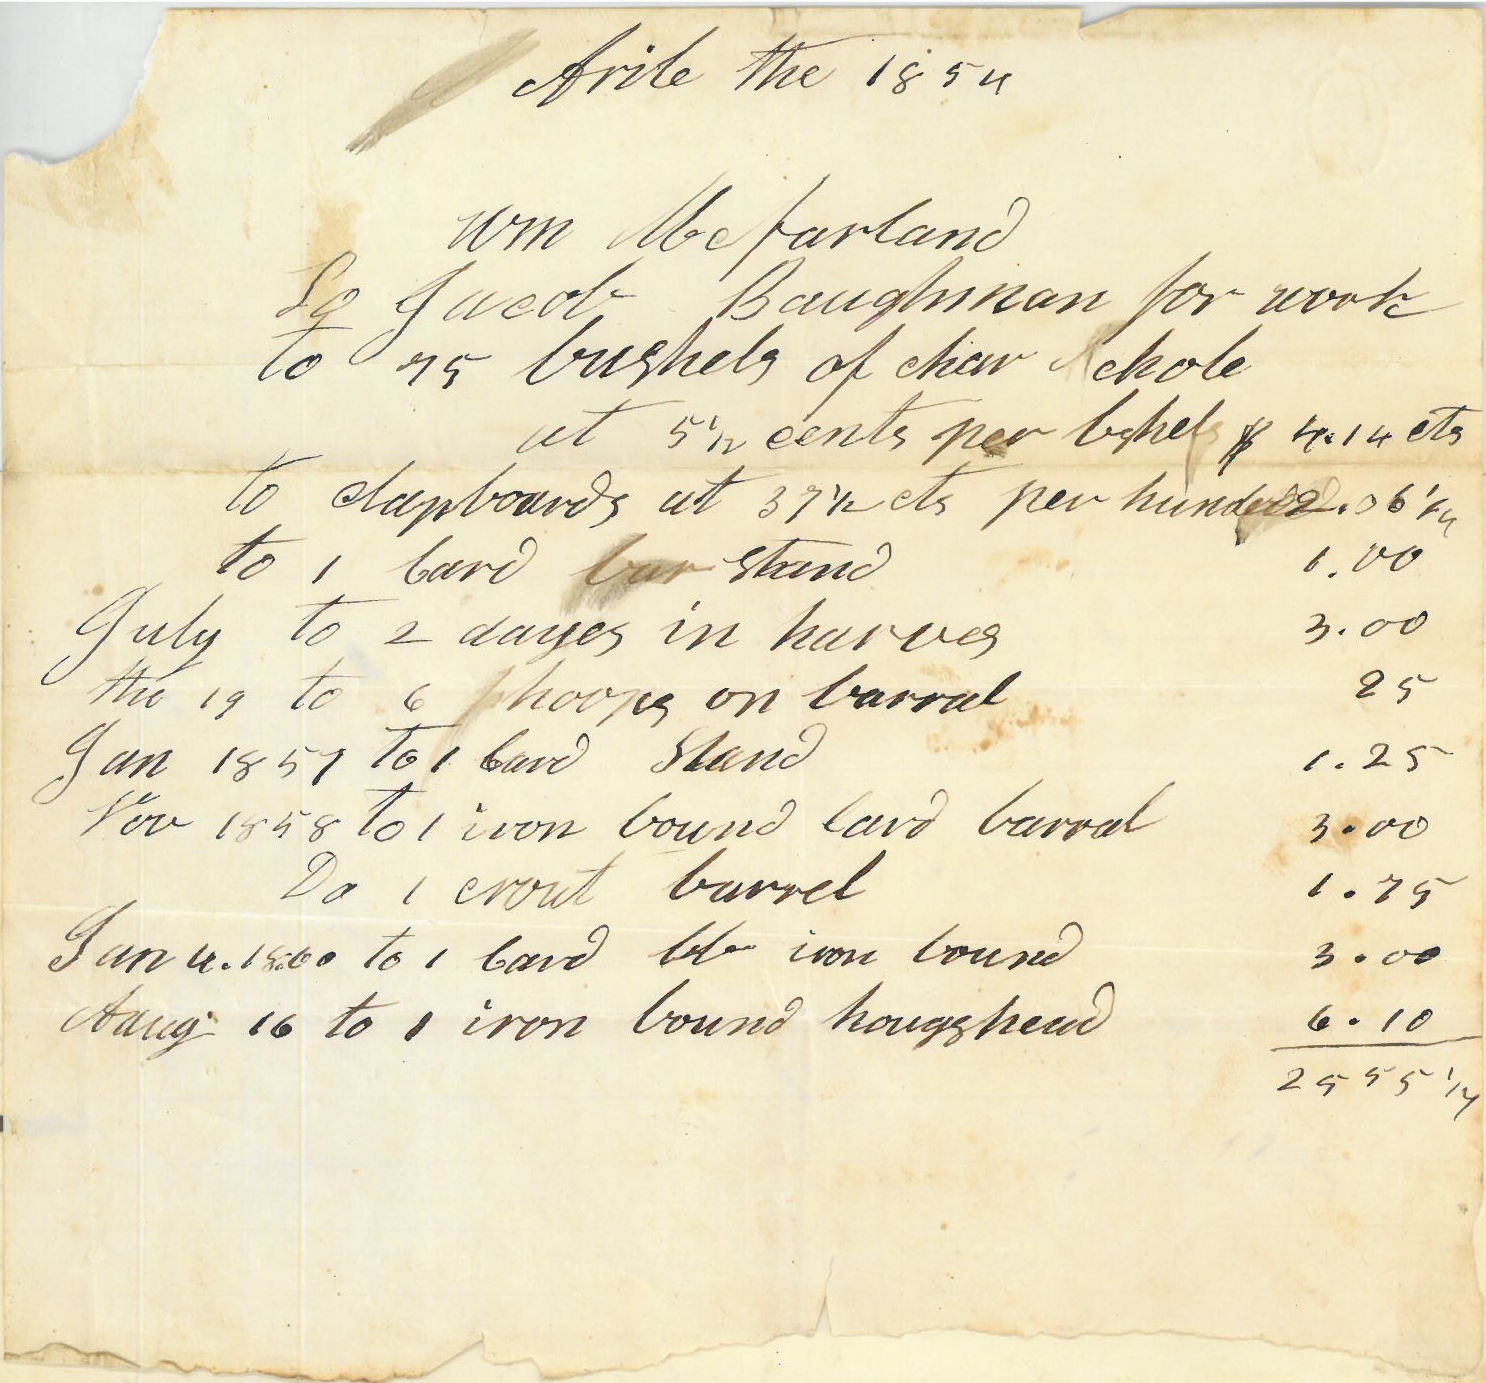 Arile the 1854
Wm Mc farland
To Jacob Baughman for work
to 75 bushels of char chole
at 5 1/2 cents per bshel $ 4.14 cts
to clapboards at 37 1/2 cts per hunded 2.06 1/4
to 1 lard stand 1.00
July to 2 dayes in harves 3.00
the 19 to 6 hoops on barral 25
Jan 1857 to 1 lard Stand 1.25
Nov 1858 to 1 iron bound lard barral 3.00
Do 1 crout barrel 1.75
Jan 4.1860 to 1 lard bb iron bound 3.00
Aaug 16 to 1 iron bound hougshead 6.10
25 55 1/4